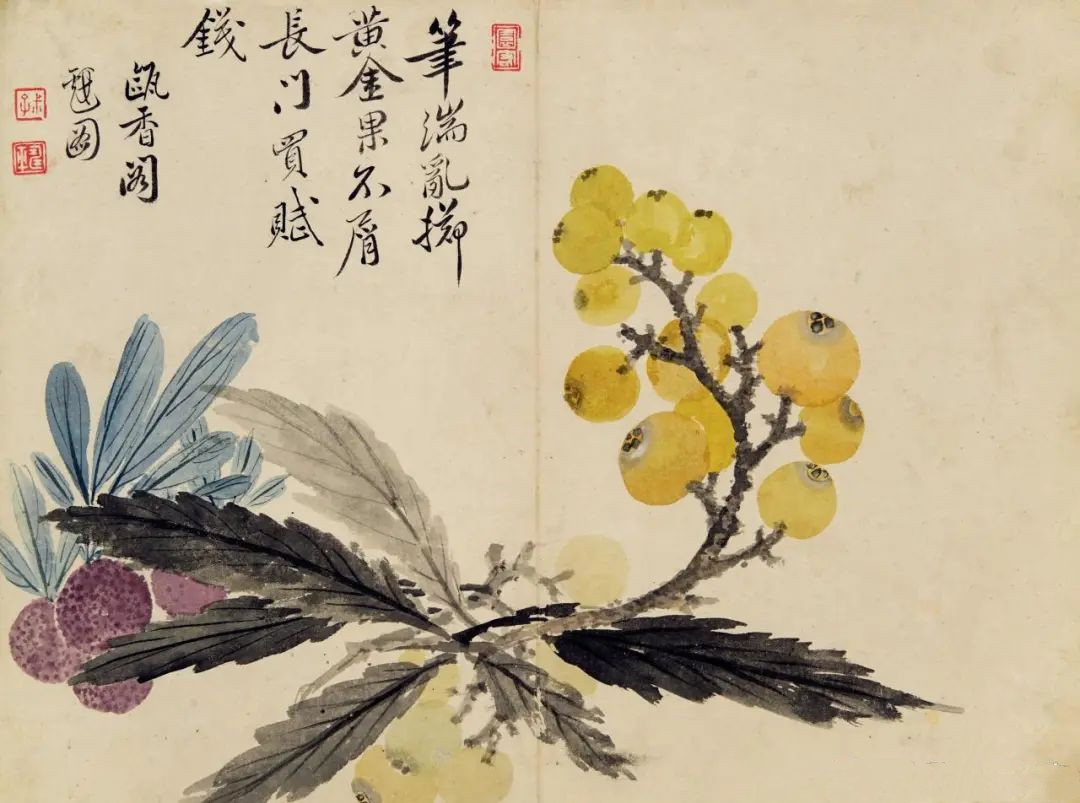 筆端亂擲
黄金果不屑
長門買賦
錢
甌香閣
戲圖